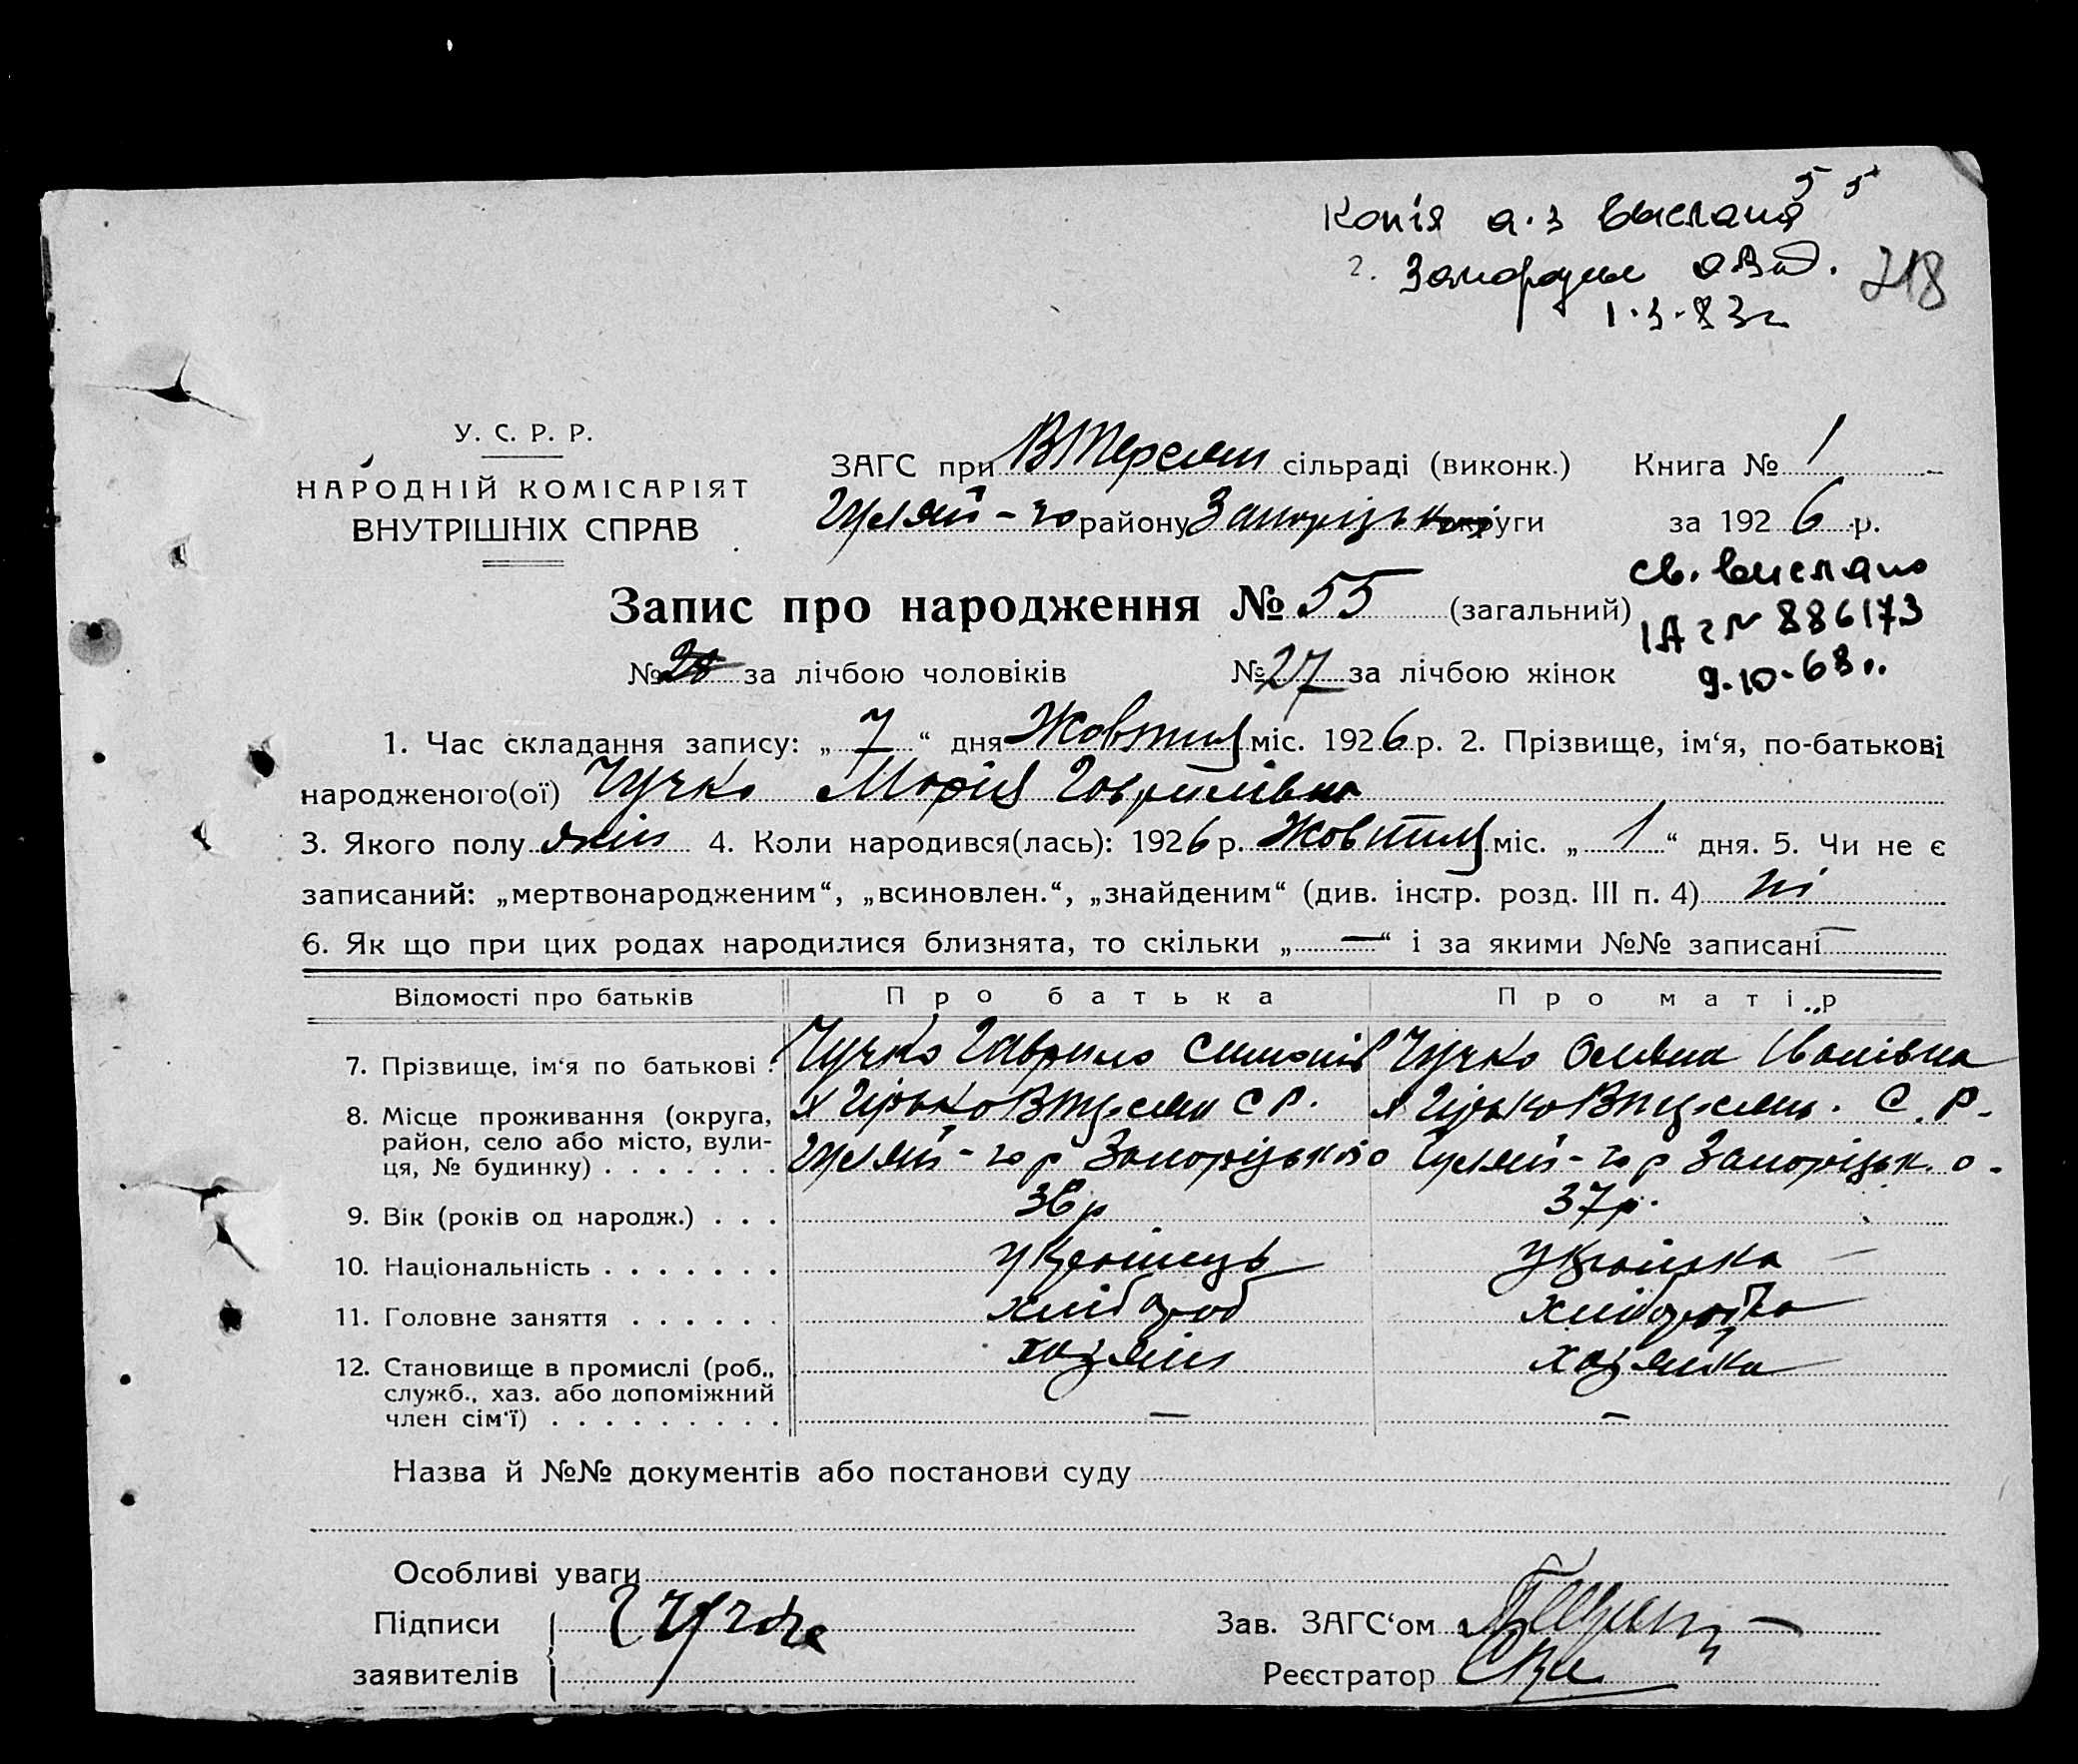 55
Копія а.з выслана
г. Запорожье
1.3.83г
218
У. С. Р. Р.
НАРОДНІЙ КОМІСАРІЯТ
ВНУТРІШНІХ СПРАВ
ЗАГС при ВТерсян сільраді (виконк.) Книга № 1
Гуляй-го району Запоріськ округи за 1926 р.
Запис про народження № 55 (загальний)
св. выслано
886173
9.10.68г.
№ за лічбою чоловіків № 27 за лічбою жінок
1. Час складання запису: „7“ дня Жовтня міс. 1926 р. 2. Прізвище, ім‘я, по-батькові
народженого(ої) Чучко Марія Гаврилівна
3. Якого полу жін 4. Коли народився(лась): 1926 р. Жовтня міс. „1“ дня. 5. Чи не є
записаний: „мертвонародженим“, „всиновлен.“, „знайденим“ (див. інстр. розд. III п. 4) ні
6. Як що при цих родах народилися близнята, то скільки „—“ і за якими №№ записані —
Відомості про батьків Про батька Про матір
7. Прізвище, ім‘я по батькові: Чучко Гаврило Симонів Чучко Іванівна
8. Місце проживання (округа, С Р. С. Р.
район, село або місто, вули- Гуляй-го р Запоріського Гуляй-го р Запоріськ. о.
ця, № будинку)
9. Вік (років од народж.) 36р 37р.
10. Національність українець українка
11. Головне заняття хлібороб хліборобка
12. Становище в промислі (роб., хазяїн хазяйка
служб., хаз. або допоміжний
член сім‘ї) — —
Назва й №№ документів або постанови суду
Особливі уваги
Підписи Г Чучко Зав. ЗАГС‘ом
заявителів Реєстратор